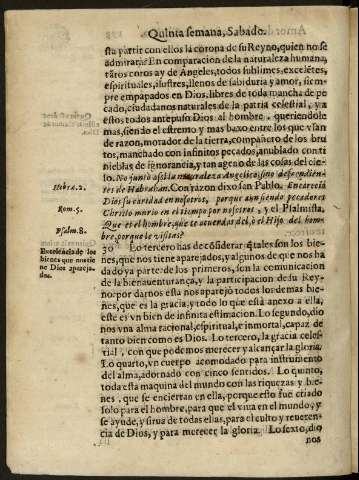 Quinta semana, Sabado.
sta partir con ellos la corona de su Reyno, quien no se
admirara? En comparacion de la naturaleza humana,
ay de Angeles, todos sublimes, excelẽtes,
espirituales, ilustres, llenos de sabiduria y amor, siem
pre empapados en Dios, libres de toda mancha de pe
cado, ciudadanos naturales de la patria celestial, y a
estos todos antepuso Dios al hombre, queriendole
mas, siendo el estremo y mas baxo entre los que vsan
de razon, morador de la tierra, compañero de los bru
tos, manchado con infinitos pecados, anublado con ti
nieblas de ignorancia, y tan ageno de las cosas del cie-
lo. No junto a si la naturaleza Angelica, sino descendien
Hebræ. 2.
tes de Habraham. Con razon dixo san Pablo. Encarecio
Dios su caridad en nosotros, porque aun siendo pecadores
Rom. 5.
Christo murio en el tiempo por nosotros, y el Psalmista,
Psalm. 8.
Que es el hombre, que te acuerdas del, o el Hijo del hom
bre, porque le visitas?
30 Lo tercero has de cõsiderar quales son los bie-
Excelẽcia de los
bienes que nos tie
ne Dios apareja-
dos.
nes, que nos tiene aparejados, y algunos de que nos ha
dado ya parte: de los primeros, son la comunicacion
de la bienauenturança, y la participacion de su Rey-
no: por darnos esta nos aparejò todos los de mas bie-
nes, que es la gracia, y todo lo que està anexo a ella,
este es vn bien de infinita estimacion. Lo segundo, dio
nos vna alma racional, espiritual, e inmortal, capaz de
tanto bien como es Dios. Lo tercero, la gracia celes-
tial, con que podemos merecer y alcançar la gloria.
Lo quarto, vn cuerpo acomodado para instrumento
del alma, adornado con cinco sentidos. Lo quinto,
toda esta maquina del mundo con las riquezas y bie-
nes, que se encierran en ella, porque esto fue criado
solo para el hombre, para que el viua en el mundo, y
se ayude, y sirua de todas ellas, para el culto y reueren-
cia de Dios, y para merecer la gloria. Lo sexto, dio
nos